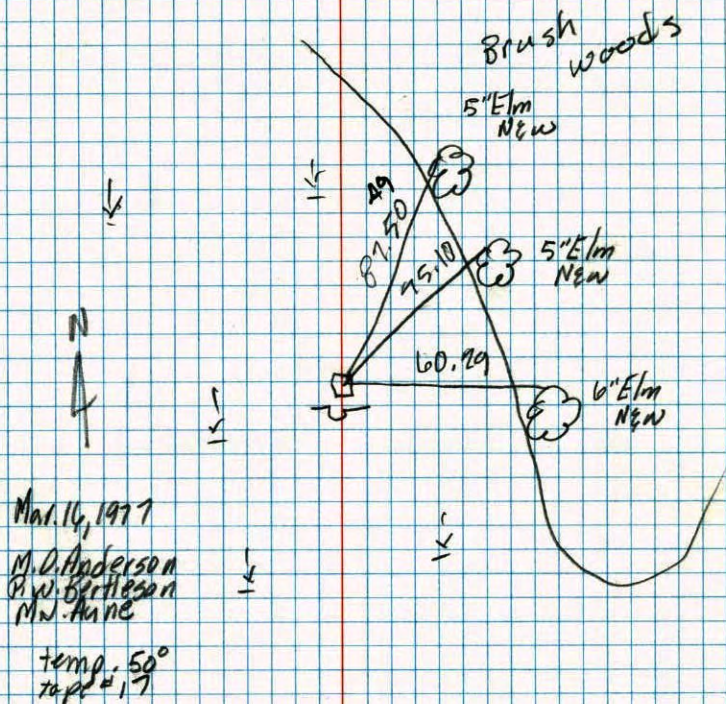 Brush
woods
5"Elm
N&W
49
87.50
5"Elm
N&W
60.29
6"Elm
N&W
N
Mar. 16, 1977
M.O. Anderson
R.W. Bertleson
M.N. Aune
temp. 50°
tape #17